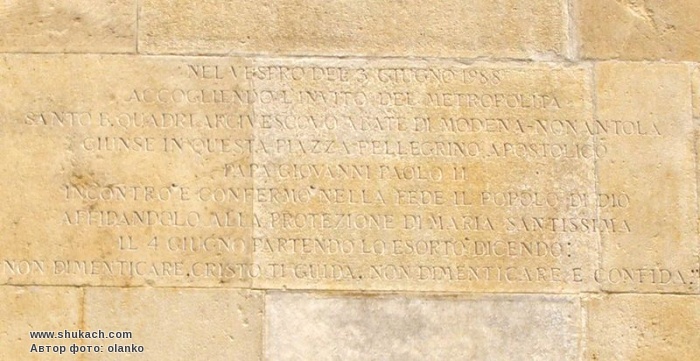 NEL VESPRO DEL 3 GIUGNO 1988
ACCOGLIENDO L'INVITO DEL METROPOLITA
SANTO B. QUADRI ARCIVESCOVO ABATE DI MODENA-NONANTOLA
GIUNSE IN QUESTA PIAZZA PELLEGRINO APOSTOLICO
PAPA GIOVANNI PAOLO II
INCONTRÒ E CONFERMÒ NELLA FEDE IL POPOLO DI DIO
AFFIDANDOLO ALLA PROTEZIONE DI MARIA SANTISSIMA
IL 4 GIUGNO PARTENDO LO ESORTÒ DICENDO:
NON DIMENTICARE, CRISTO TI GUIDA. NON DIMENTICARE E CONFIDA."
www.shukach.com
Автор фото: olanko